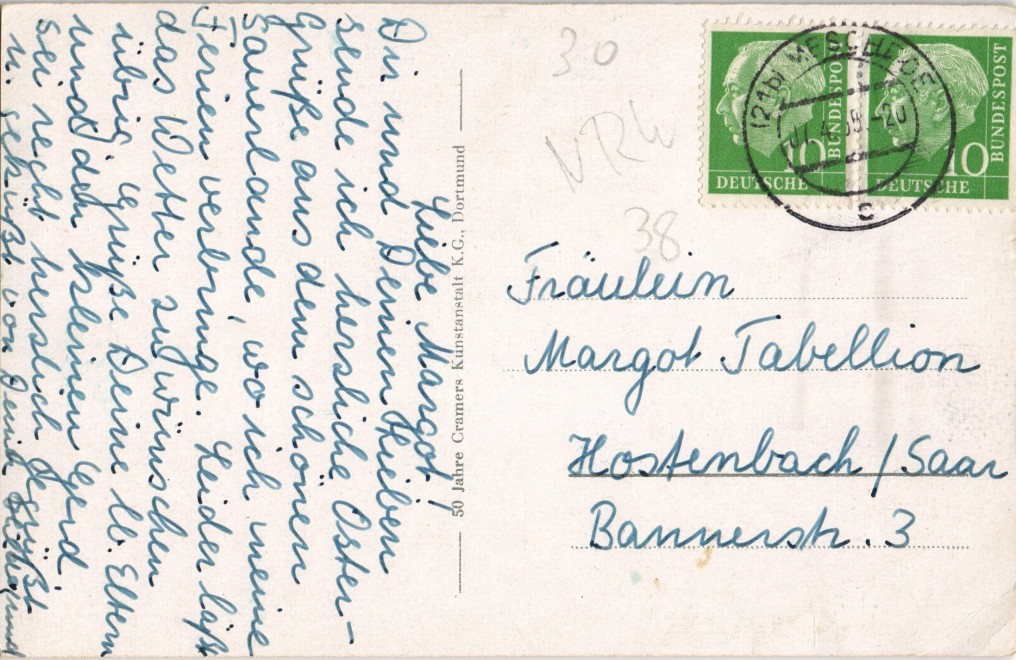 Liebe Margot!
Dir und Deinen Lieben
sende ich herzliche Oster-
Grüße aus dem schönen
Sauerlande, wo ich meine
Ferien verbringe. Leider läßt
das Wetter zu wünschen
übrig. Grüße Deine lb. Eltern
und den kleinen Gerd
sei recht herzlich gegrüßt
u. geküßt von Deiner
50 Jahre Cramers Kunstanstalt K.G., Dortmund
30
NRW
38
(21b) MESCHEDE
-20
c
DEUTSCHE BUNDESPOST 10
DEUTSCHE BUNDESPOST 10
Fräulein
Margot Tabellion
Hostenbach/Saar
Bannerstr. 3